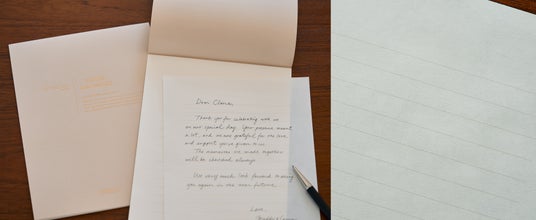 Dear Clara,
Thank you for celebrating with us
on our special day. Your presence meant
a lot, and we are grateful for the love
and support you've given to us.
The memories we made together
will be cherished always.
We very much look forward to seeing
you again in the near future.
Love,